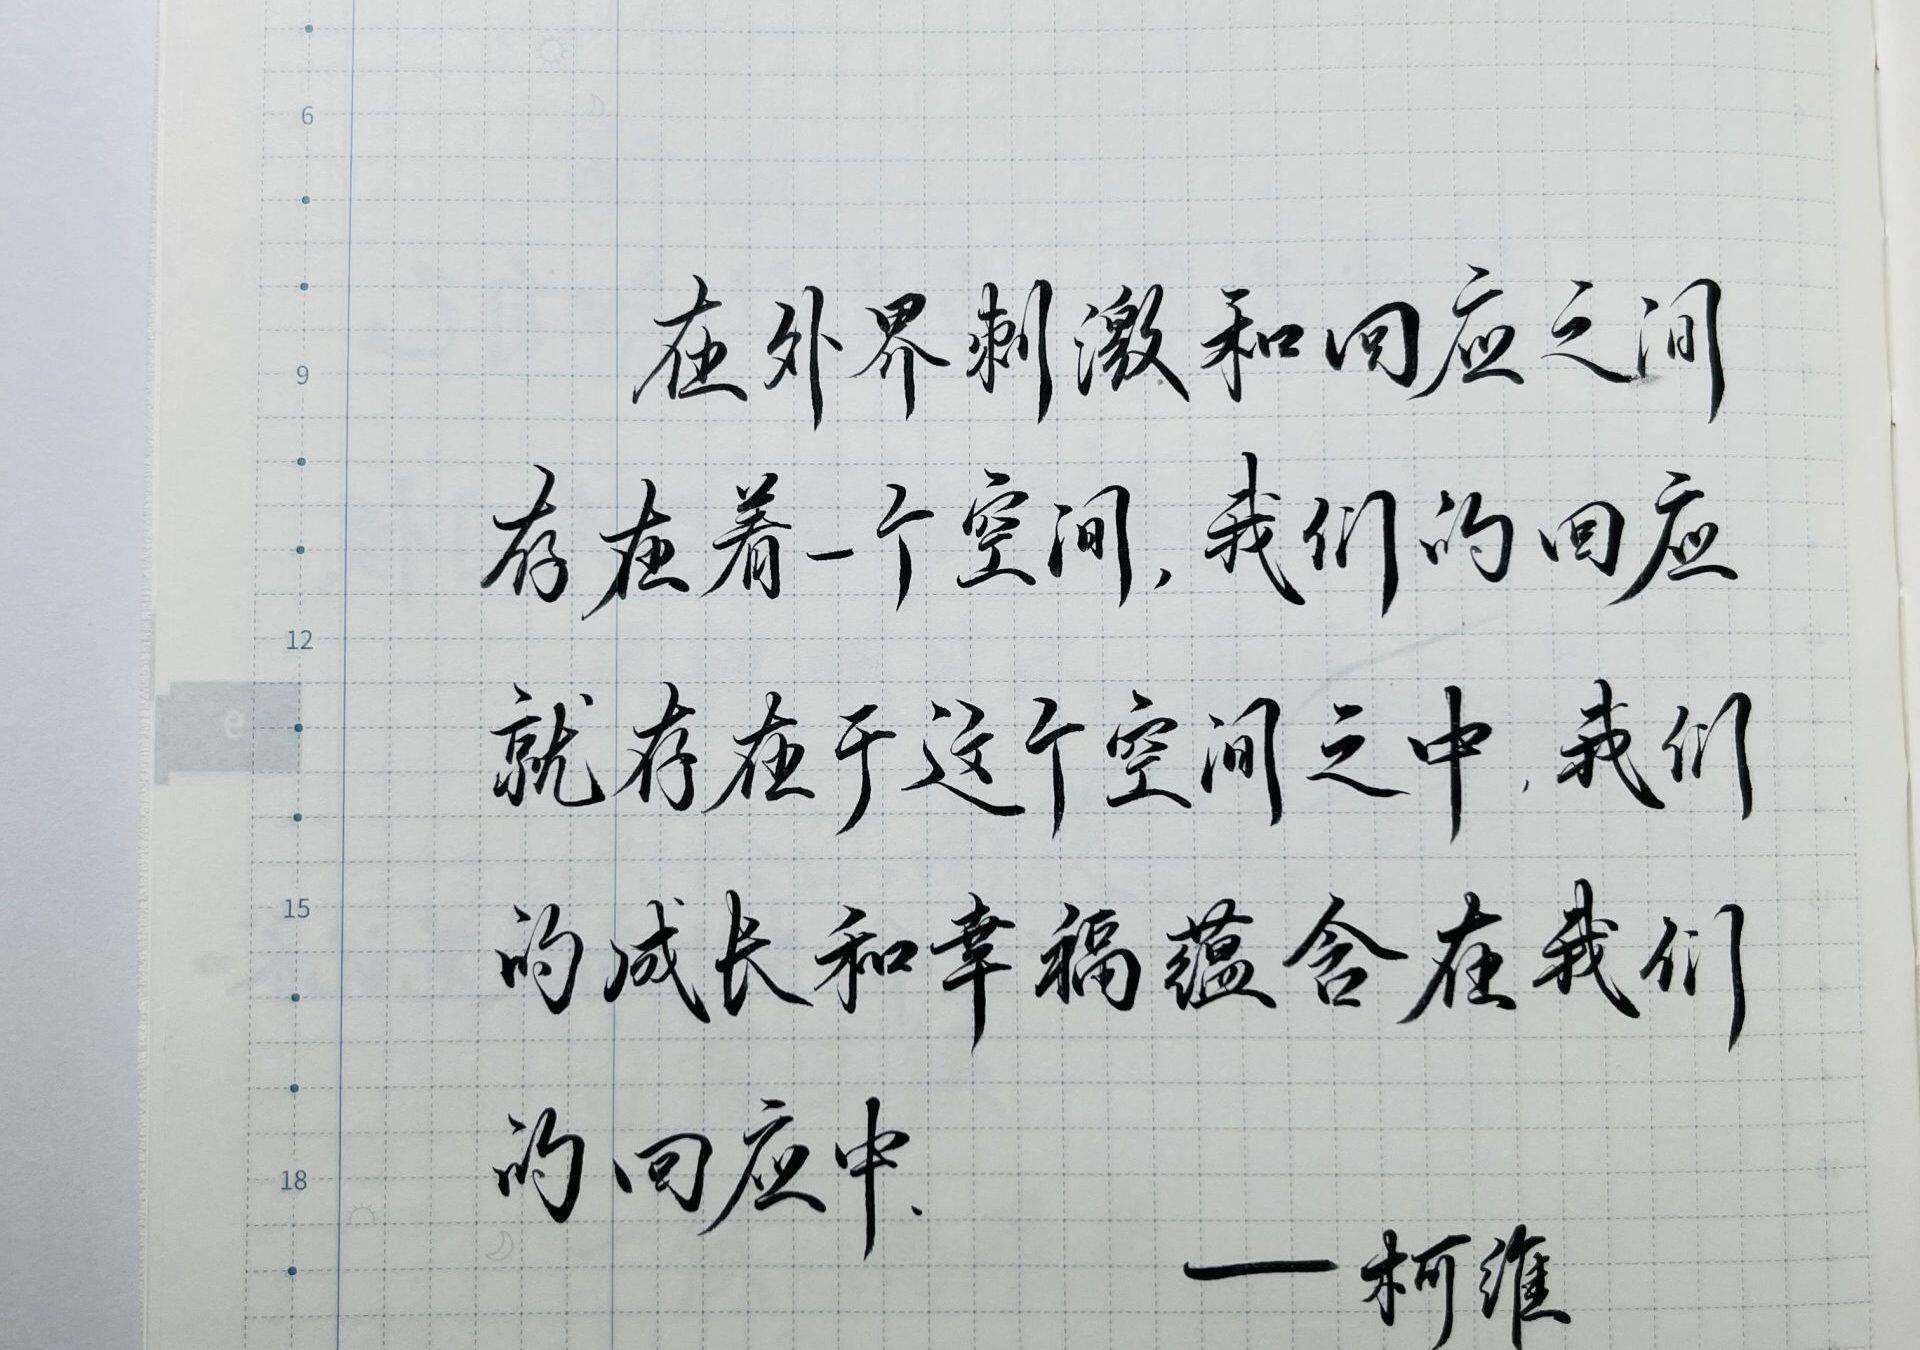 6
在外界刺激和回应之间
9
存在着一个空间,我们的回应
12
就存在于这个空间之中,我们
15
的成长和幸福蕴含在我们
的回应中.
18
——柯维